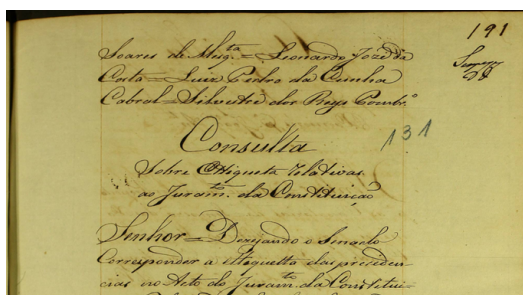 191
Soares de Mesq.ta = Leonardo Jozé da
Costa = Luiz Pedro da Cunha
Cabral = Silvestre dos Reys Coimbr.º
Consulta
131
Sobre Etiqueta relativas
ao Juram.to da Constituição
Senhor = Dezejando o Senado
Corresponder a etiquetta das preceden-
cias no Acto do Juram.to da Constitui-